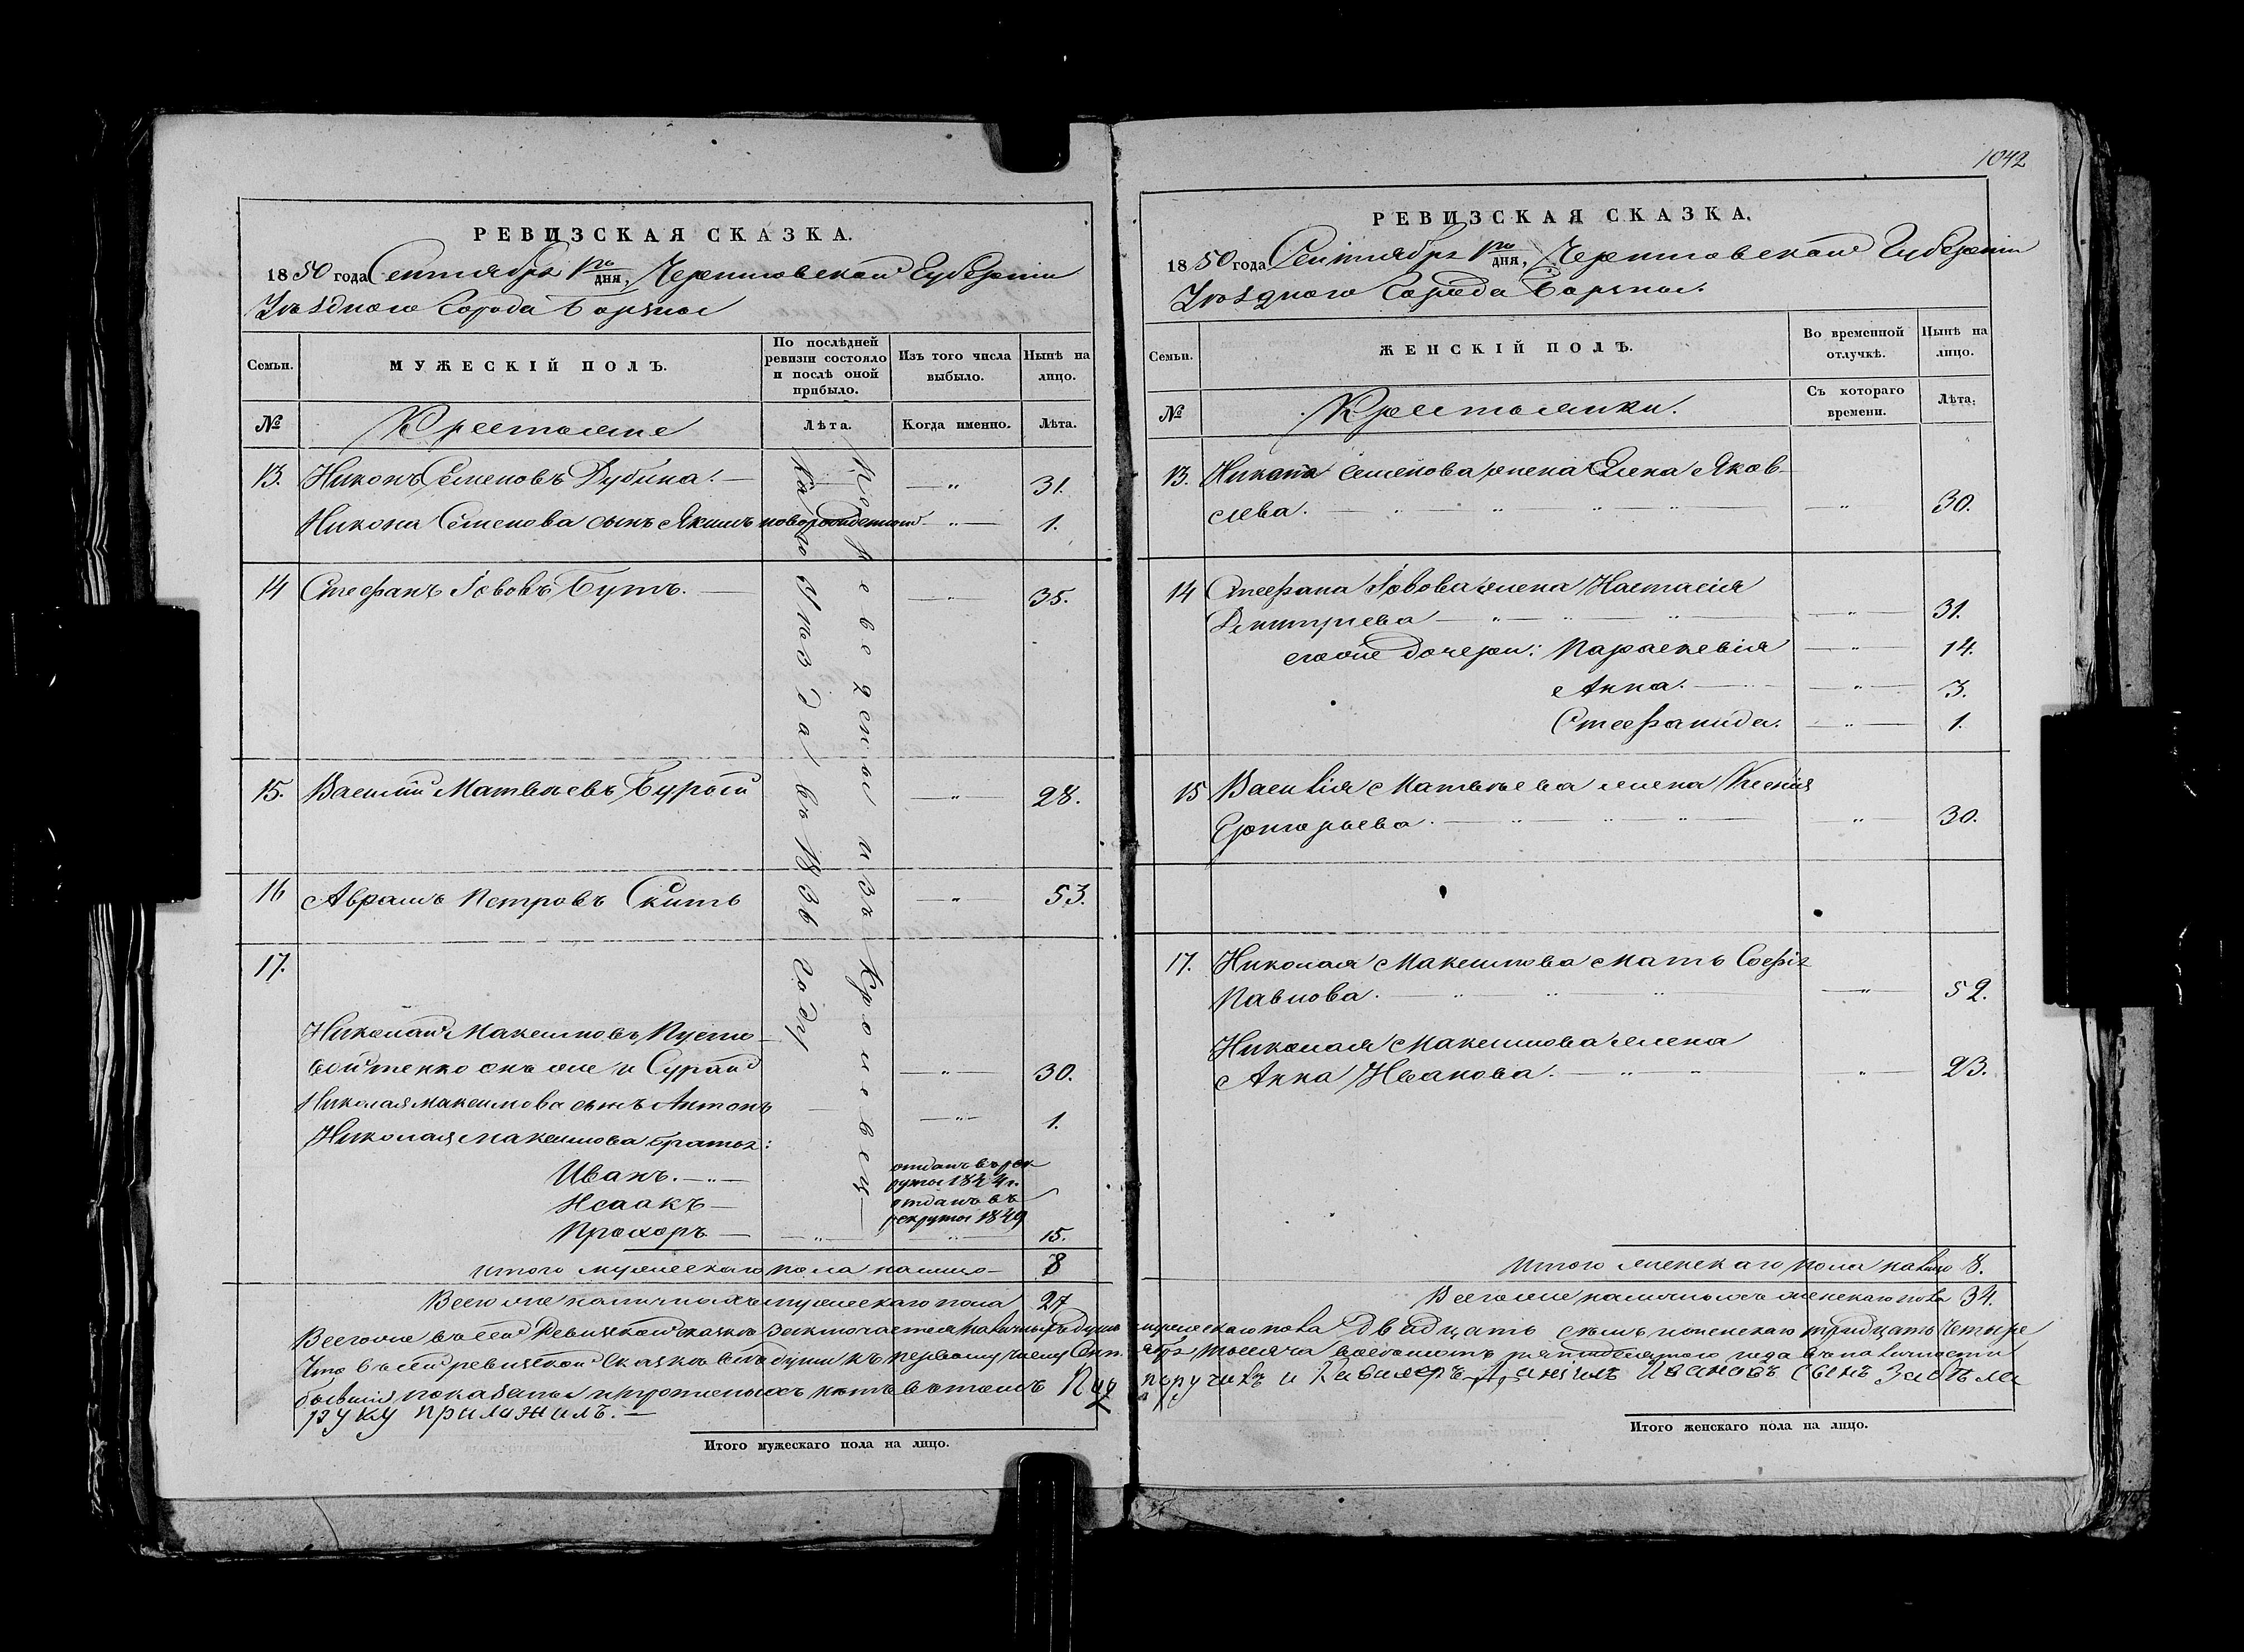 РЕВИЗСКАЯ СКАЗКА.
1850 года Сентября 1го дня, Черниговской Губернiи
Уѣзднаго Города Борзны
Семьи.
МУЖЕСКIЙ ПОЛЪ.
По послѣдней ревизiи состояло и послѣ оной прибыло.
Изъ того числа выбыло.
Нынѣ на лицо.
№
Крестьяне
Лѣта.
Когда именно.
Лѣта.
Переведены изъ Кролевец
каго Уѣзда въ 1836 году
13. Никонъ Семеновъ Дубина. — „ — 31.
Никона Семенова сынъ Якимъ новорожденной — „ — 1.
14 Стефанъ Iововъ Бутъ. — „ — 35.
15. Василiй Матвѣевъ Бурой — „ — 28.
16 Аврамъ Петровъ Скить — „ — 53.
17.
Николай Максимовъ Пусто-
войтенко онъ же и Сурай — „ — 30.
Николая Максимова сынъ Антонъ — „ — 1.
Николая Максимова братья:
Иванъ. — отданъ въ рек
руты 1844 г.
Исаакъ — отданъ въ
рекруты 1849
Прохоръ — „ — „ 15.
итого мужескаго пола налицо — 8
Всего же наличныхъ мужескаго пола 27
Всего же въ сей Ревизской сказкѣ заключается наличныхъ душъ
Что въ сей ревизской Сказкѣ всѣ души къ первому числу Сент.
бывшiя показаны и прописныхъ нѣтъ въ томъ Под
руку приложилъ. —
Итого мужескаго пола на лицо.
1042
РЕВИЗСКАЯ СКАЗКА.
1850 года Сентября 1го дня, Черниговской Губернiи
Уѣзднаго Города Борзны.
Семьи.
ЖЕНСКIЙ ПОЛЪ.
Во временной отлучкѣ.
Нынѣ на лицо.
№
Крестьянки.
Съ котораго времени.
Лѣта.
13. Никона Семенова жена Елена Яков-
лева. — „ — 30.
14 Стефана Iовова жена Настасiя
Дмитриева — „ — 31.
егоже дочери: Параскевiя — „ — 14.
Анна. — „ — 3.
Стефанида. — „ — 1.
15 Василiя Матвѣева жена Ксенiя
Григорьева. — „ — 30.
17. Николая Максимова мать Софiя
Павлова. — „ — 52.
Николая Максимова жена
Анна Иванова. — „ — 23.
Итого женскаго пола налицо 8.
Всего же наличныхъ женскаго пола 34.
мужескаго пола Двадцать семь и женскаго тридцать Четыре
ября тысяча восемьсотъ пятдесятого года въ наличности
поручикъ и Кавалеръ Данiилъ Ивановъ сынъ
Итого женскаго пола на лицо.